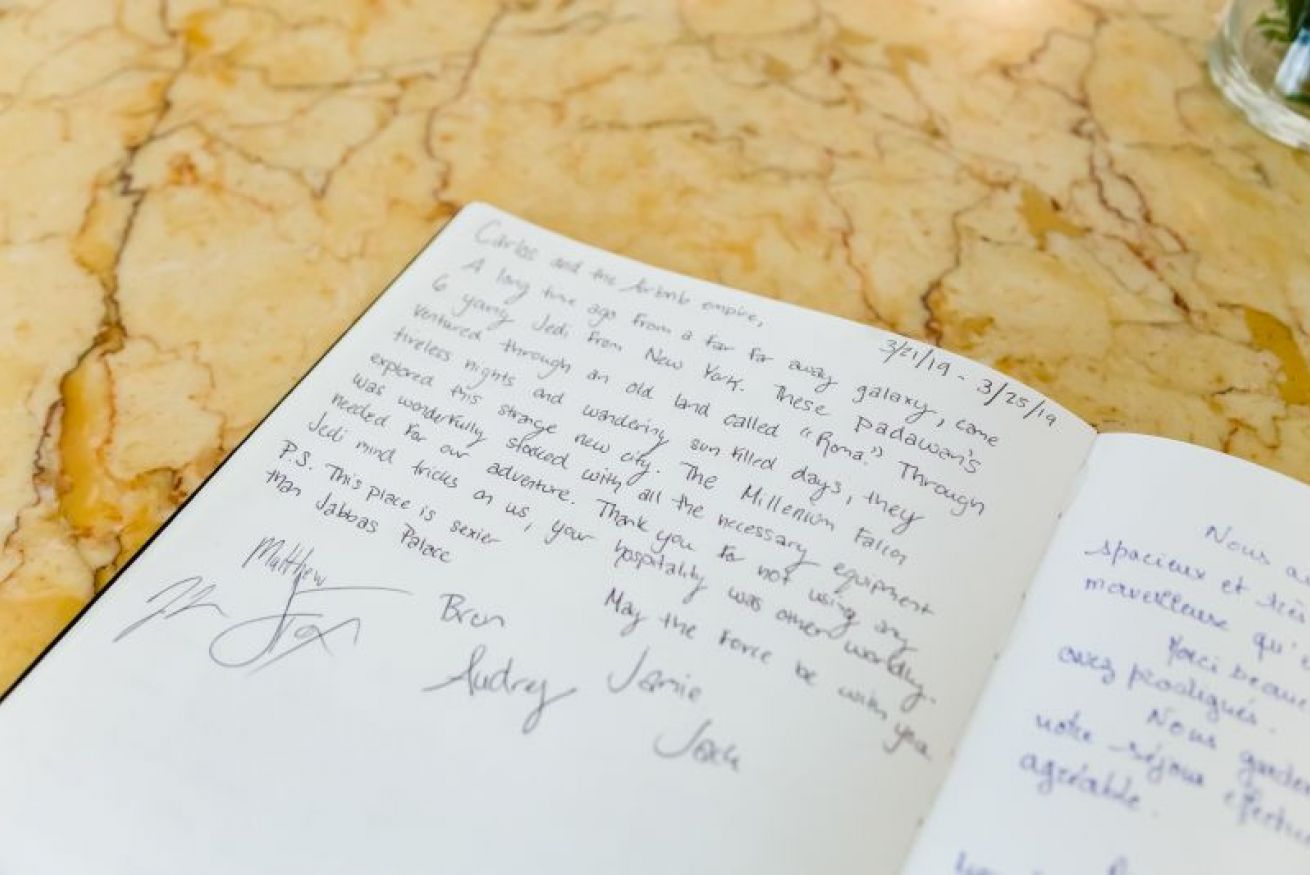 3/21/19 - 3/25/19
Carlos and the Airbnb empire,
A long time ago from a far far away galaxy, came
6 young Jedi from New York. These Padawan's
ventured through an old land called "Roma." Through
tireless nights and wandering sun filled days, they
explored this strange new city. The Millenium Falcon
was wonderfully stocked with all the necessary equipment
needed for our adventure. Thank you for not using any
Jedi mind tricks on us, your hospitality was other worldly.
P.S. This place is sexier
than Jabbas Palace
May the Force be with you
Matthew
Fox
Bren
Audrey
Jamie
Jack
Nous
spacieux et très
merveilleuse qu'
Merci beauc
avez prodigués.
Nous garder
notre séjour effectu
agréable.